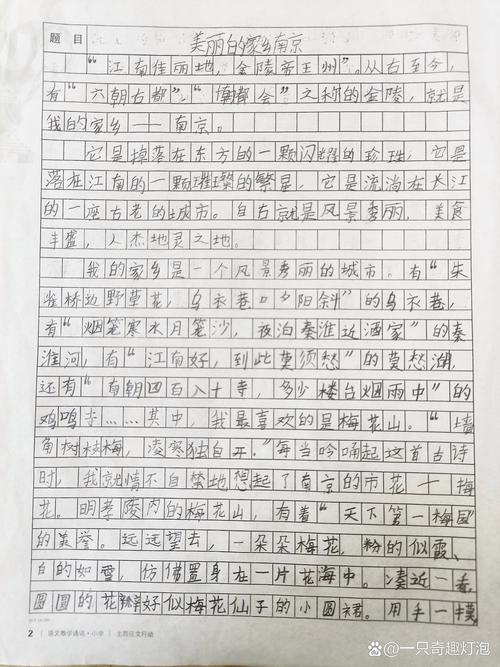 题目 美丽的家乡南京
“江南佳丽地,金陵帝王州”。从古至今,
有“六朝古都”、“都会”之称的金陵,就是
我的家乡——南京。
它是掉落在东方的一颗闪耀的珍珠,它是
落在江南的一颗璀璨的繁星,它是流淌在长江
的一座古老的城市。自古就是风景秀丽,美食
丰盛,人杰地灵之地。
我的家乡是一个风景秀丽的城市。有“朱
雀桥边野草花,乌衣巷口夕阳斜”的乌衣巷,
有“烟笼寒水月笼沙,夜泊秦淮近酒家”的秦
淮河,有“江南好,到此莫须愁”的莫愁湖,
还有“南朝四百八十寺,多少楼台烟雨中”的
鸡鸣寺……其中,我最喜欢的是梅花山。“墙
角树枝梅,凌寒独自开。”每当吟诵起这首古诗
时,我就情不自禁地想起了南京的市花——梅
花。明孝陵内的梅花山,有着“天下第一梅园”
的美誉。远远望去,一朵朵梅花,粉的似霞、
白的如雪,仿佛置身在一片花海中。凑近一看,
圆圆的花瓣好似梅花仙子的小圆裙。用手一摸
2 语文教学通讯·小学 主题征文行动
@一只奇趣灯泡